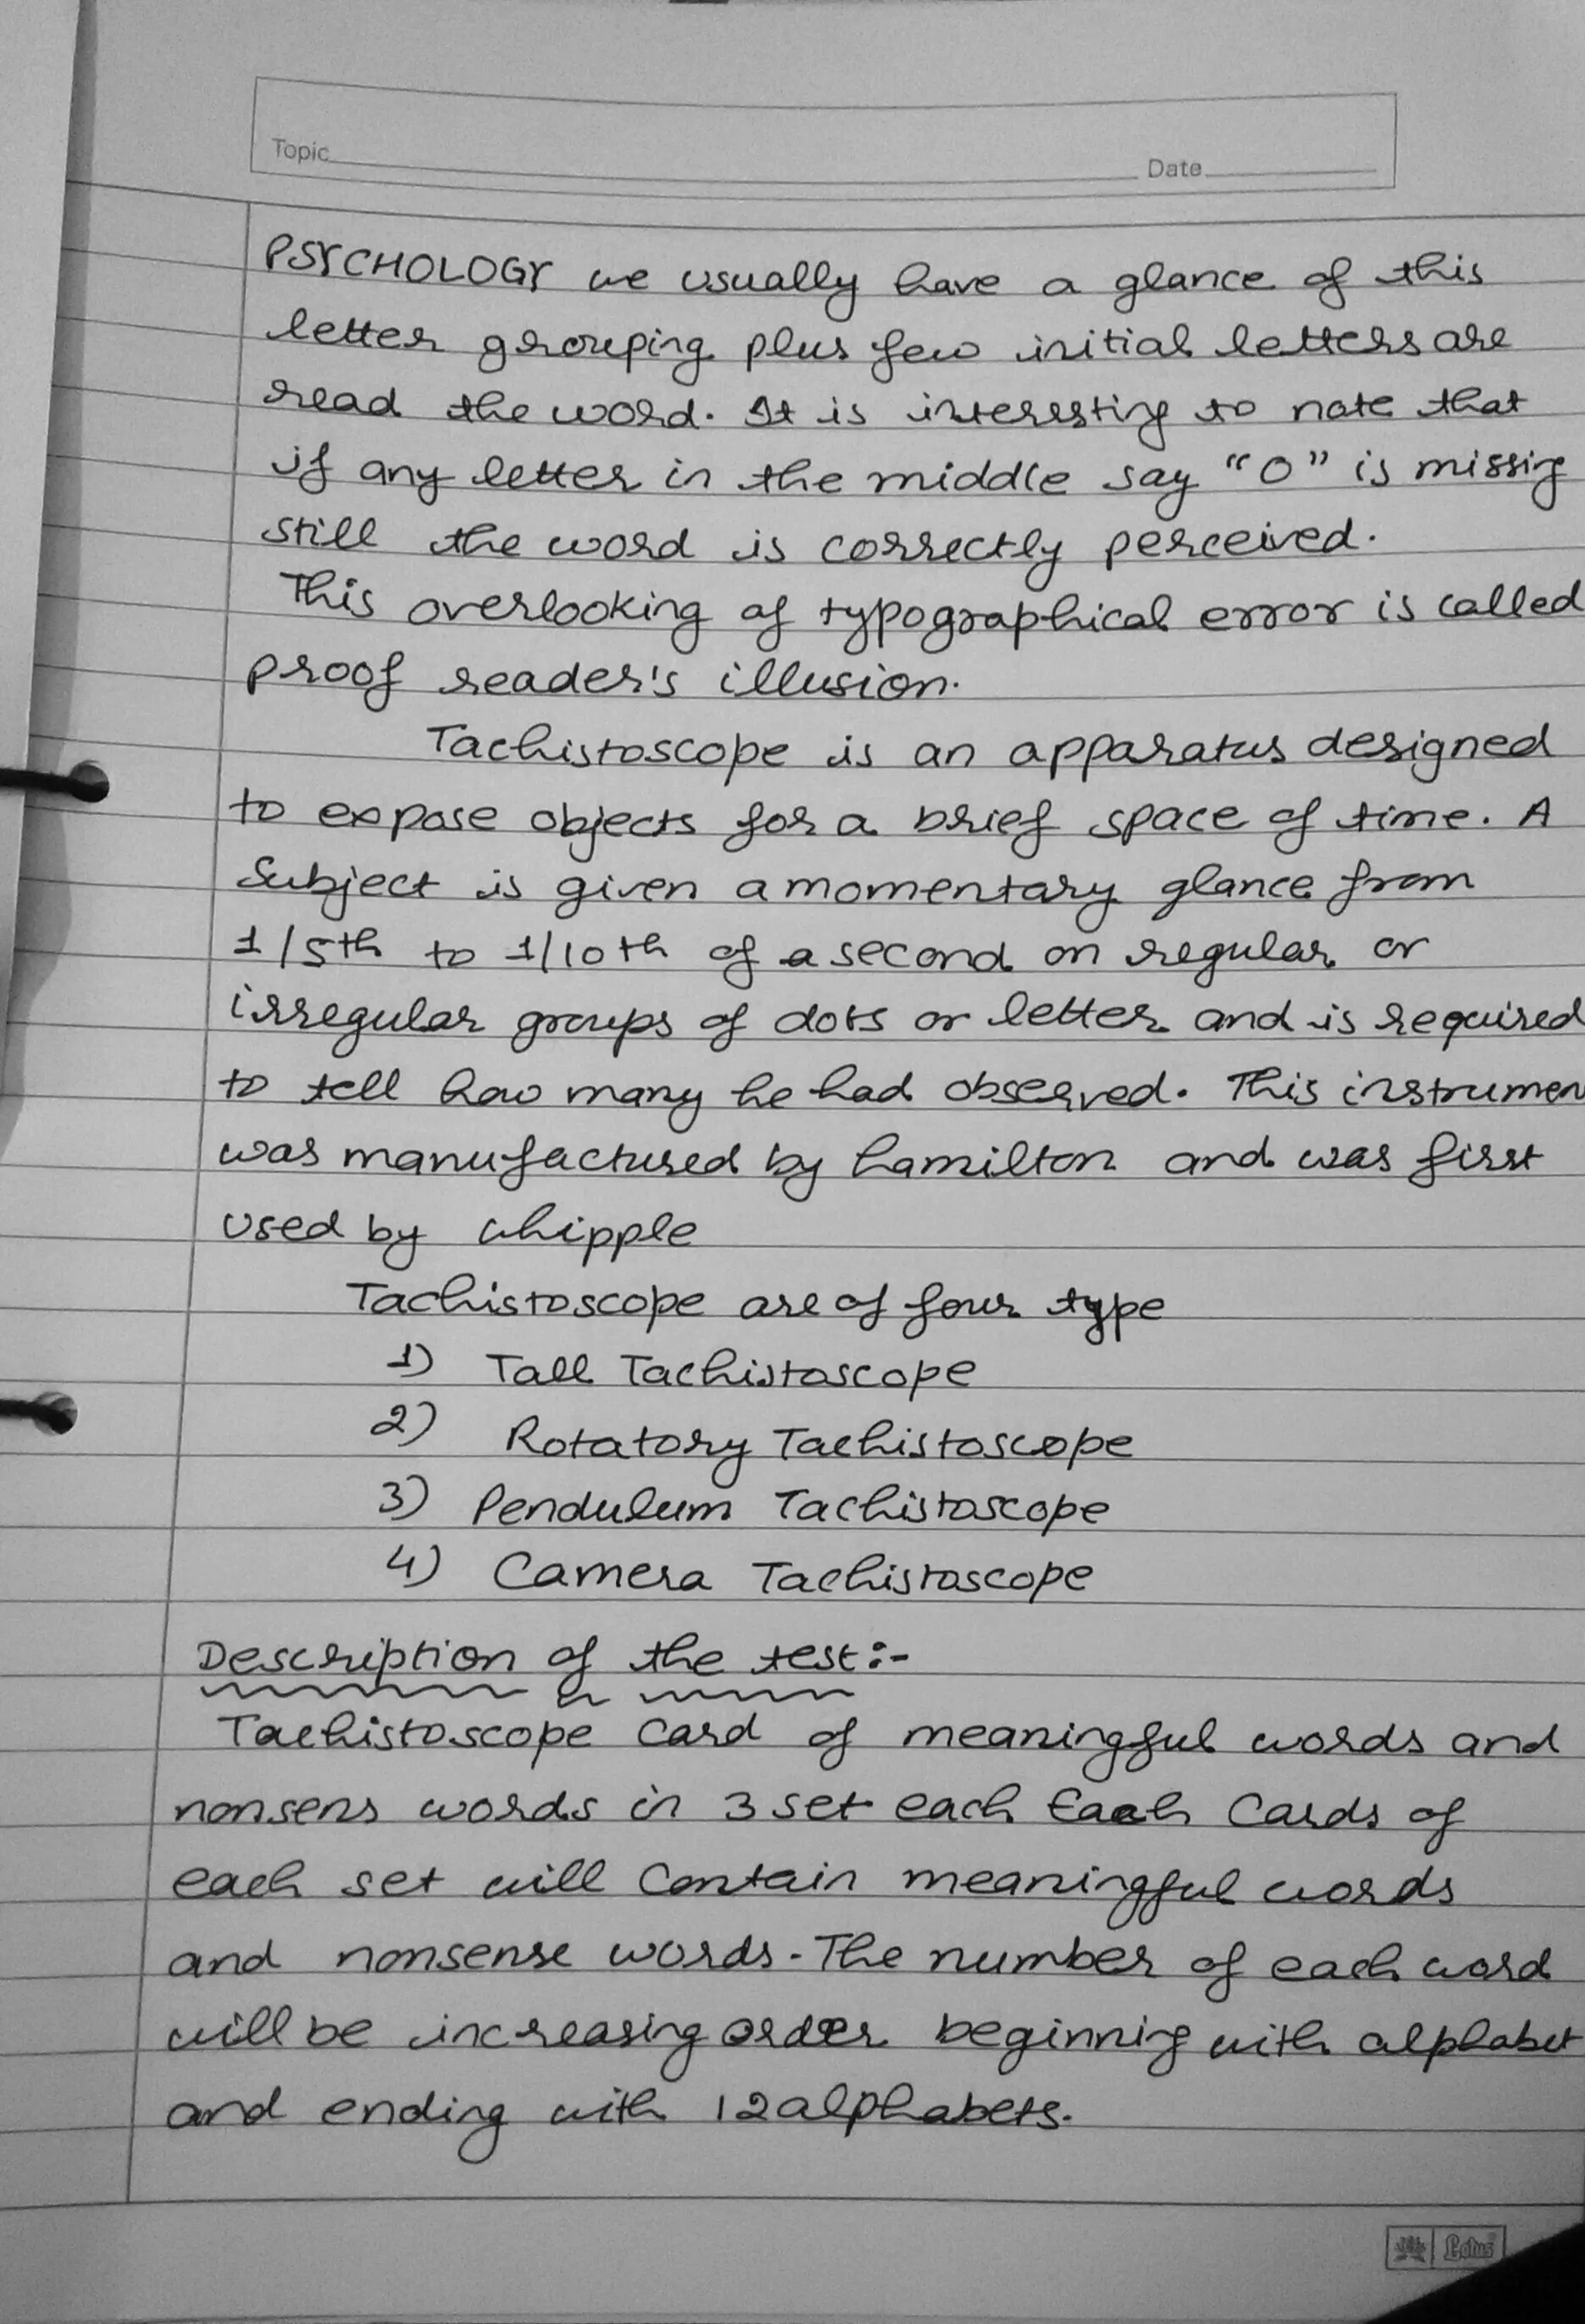 Topic
Date
PSYCHOLOGY we usually have a glance of this
letter grouping plus few initial letters are
read the word. It is interesting to note that
if any letter in the middle say "O" is missing
still the word is correctly perceived.
This overlooking of typographical error is called
proof reader's illusion.
Tachistoscope is an apparatus designed
to expose objects for a brief space of time. A
Subject is given a momentary glance from
1/5th to 1/10th of a second on regular or
irregular groups of dots or letter and is required
to tell how many he had observed. This instrumen
was manufactured by hamilton and was first
used by whipple
Tachistoscope are of four type
1) Tall Tachistoscope
2) Rotatory Tachistoscope
3) Pendulum Tachistoscope
4) Camera Tachistoscope
Description of the test:-
Tachistoscope Card of meaningful words and
nonsens words in 3 set each Each Cards of
each set will Contain meaningful words
and nonsense words. The number of each word
will be increasing order beginning with alphabet
and ending with 12 alphabets.
Lotus